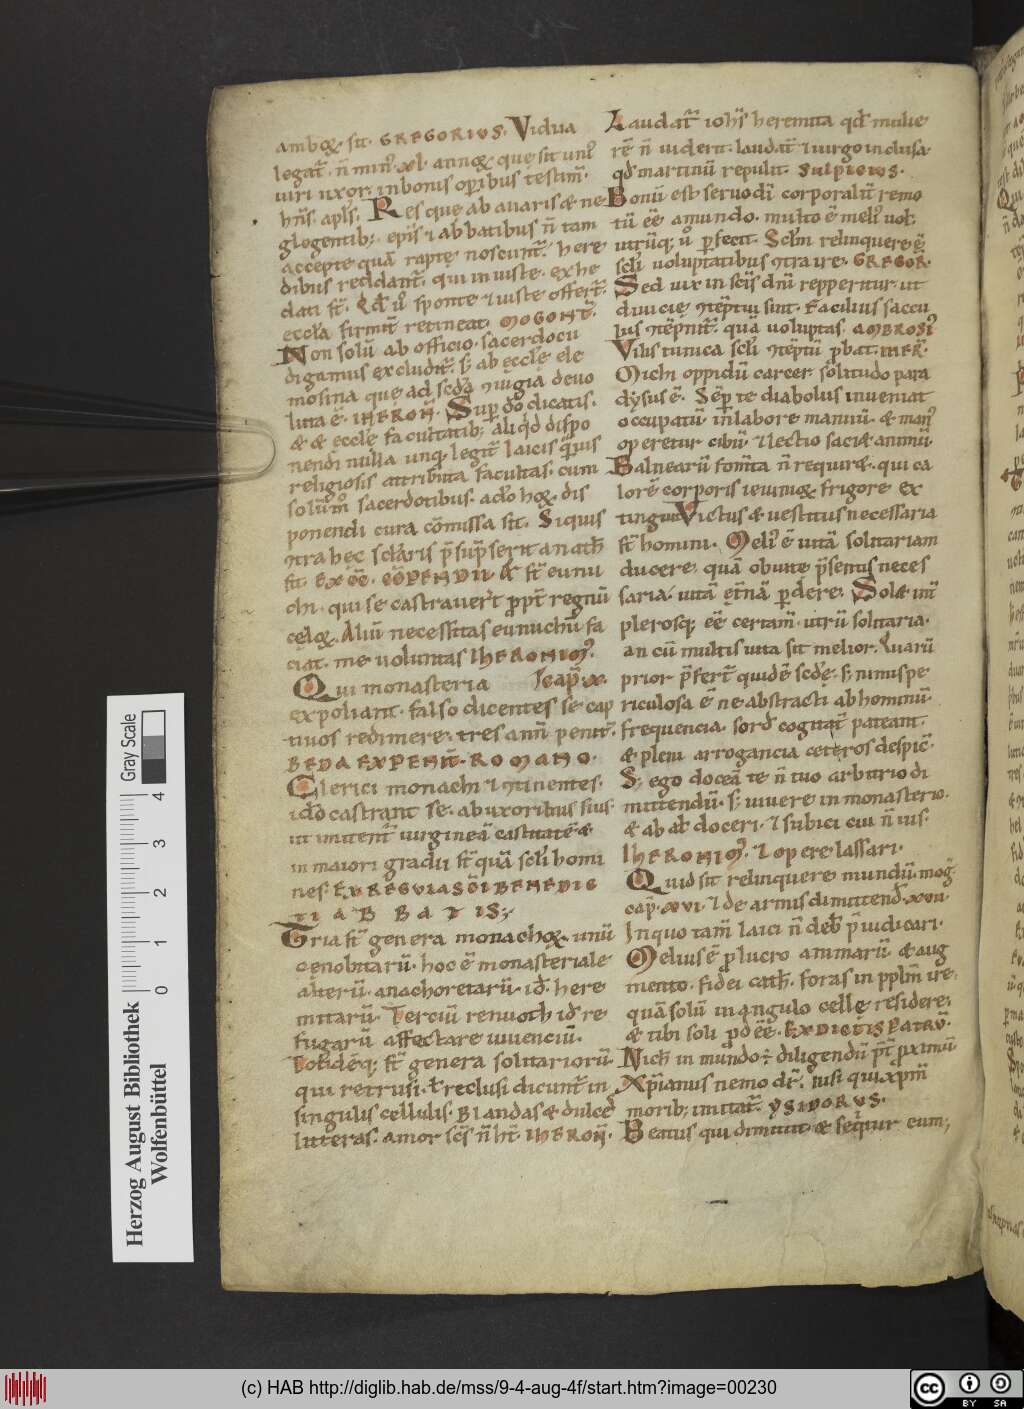 amboꝝ sit. GREGORIUS. Vidua
legat̄. n̄ min᷒. xl. annoꝝ que sit uni᷒
uiri uxor. in bonis oꝑibus testim̄.
hn̄s. apl̄s. Res que ab auaris & ne
glegentib; ep̄is ⁊ abbatibus n̄ tam
accepte quā rapte noscunt̄. here
dibus reddant̄. qui iniuste. exhe
dati st̄. Qd̄ u᷒o sponte ⁊ iuste offert̄.
eccl̄a firmit̄ retineat. MOGONT̄.
Non solū ab officio sacerdocii
digamus excludit̄. s; ab eccl̄e ele
mosina que ad scd̄a ꝯiugia deuo
luta ē. IHERON̄. Suꝑ do᷒ dicatis.
& & eccl̄e facultatib; aliqd̄ dispo
nendi nulla unq̄. legit̄ laicis quāuis
religiosis attributa facultas. cum
solūm᷒ sacerdotibus. ad᷒o hoꝝ. dis
ponendi cura cōmissa sit. Siquis
ꝯtra hec sclaris p̄sūpserit anath̄
sit. EX cc̄. CŌPENDII. & st̄ eunu
chi. qui se castrauer̄t ꝓpt̄ regnū
celoꝝ. Aliū necessitas eunuchū fa
ciat. me uoluntas IHERONIM᷒.
Qui monasteria Icap̄. x.
expoliant. falso dicentes se cap
tiuos redimere. tres ann̄ penit̄.
BEDA EX PENIT̄. ROMANO.
Clerici monachi ⁊ ꝯtinentes.
id᷒o castrant se. ab uxoribus suis.
ut imitent̄ uirgineā castitatē &
in maiori gradu st̄ quā scl̄i homi
nes. EX REGULA SC̄I BENEDIC
TI ABBATIS;
Tria st̄ genera monachoꝝ. unū
cenobitarū. hoc ē monasteriale
alterū. anachoretarū. id. here
mitarū. Terciū renuoth id. re
fugarū affectare uiuenciū.
Totidēq; st̄ genera solitariorū
qui retrusi. ł reclusi dicunt̄ in
singulis cellulis. Blandas & dulces
litteras. amor scīs n̄ ht̄. IHERON̄.
Laudat̄ ioh̄s heremita qd̄ mulie
rē n̄ uiderit. laudat̄ ⁊ uirgo inclusa.
qd̄ martinū repulit. SULPICIUS.
Bonū est seruo di᷒ corporalit̄ remo
tū eē a mundo. multo ē meli᷒ uol;
utrūq; u᷒ ꝑfecit. Scl̄m relinquere &
scl̄i uoluptatibus ꝯtraire. GREGOR.
Sed uix in scīs dn̄ū repperitur. ut
diuicie ꝯtēptui sint. Facilius saccu
lus ꝯtēpnit̄. quā uoluptas. AMBROSI᷒
Vilis tunica scl̄i ꝯtēptū ꝓbat. IHER̄.
Michi oppidū carcer. solitudo para
dysus ē. Sēꝑ te diabolus inueniat
occupatū in labore manuū. & man᷒
operetur cibū. ⁊ lectio saciæ animū.
Balnearū fom̄ta n̄ requiræ. qui ca
lorē corporis ieiunioꝝ frigore ex
tinguit. Victus & uestitus necessaria
st̄ homini. Meli᷒ ē uitā solitariam
ducere. quā obuite p̄sentis neces
saria. uitā et̄nā ꝑdere. Solæ int̄
plerosq; eē certam̄. utrū solitaria.
an cū multis uita sit melior. Quarū
prior p̄fert̄ quidē scd̄e. s; nimis pe
riculosa ē ne abstracti ab hominū.
frequencia. sord̄ cogitat̄ pateant.
& pleni arrogancia ceteros despic̄.
S; ego doceā te n̄ tuo arbitrio di
mittendū. s; uiuere in monasterio.
& ab ab̄ doceri. ⁊ subici cui n̄ uis.
IHERONIM᷒. ⁊ opere lassari.
Quid sit relinquere mundū. mog̃.
cap̄. xvi. ⁊ de armis dimittend̄. xvii.
In quo tam̄ laici n̄ deb̄ p̄iudicari.
Melius ē ꝓ lucro animarū. & aug
mento. fidei cath̄. foras in ppl̄m ire.
quā solū in angulo celle residere.
& tibi soli ꝓdeē. EX DICTIS PATRŪ.
Nich̄ in mundo ÷ diligendū p̄t̄ ꝓximū.
Xp̄ianus nemo dr̄. nisi qui xp̄m
morib; imitat̄. YSIDORUS.
Beatus qui dimittit & seq̄tur eum;
Herzog August Bibliothek
Wolfenbüttel
0 1 2 3 4
Gray Scale
(c) HAB http://diglib.hab.de/mss/9-4-aug-4f/start.htm?image=00230
cc BY SA